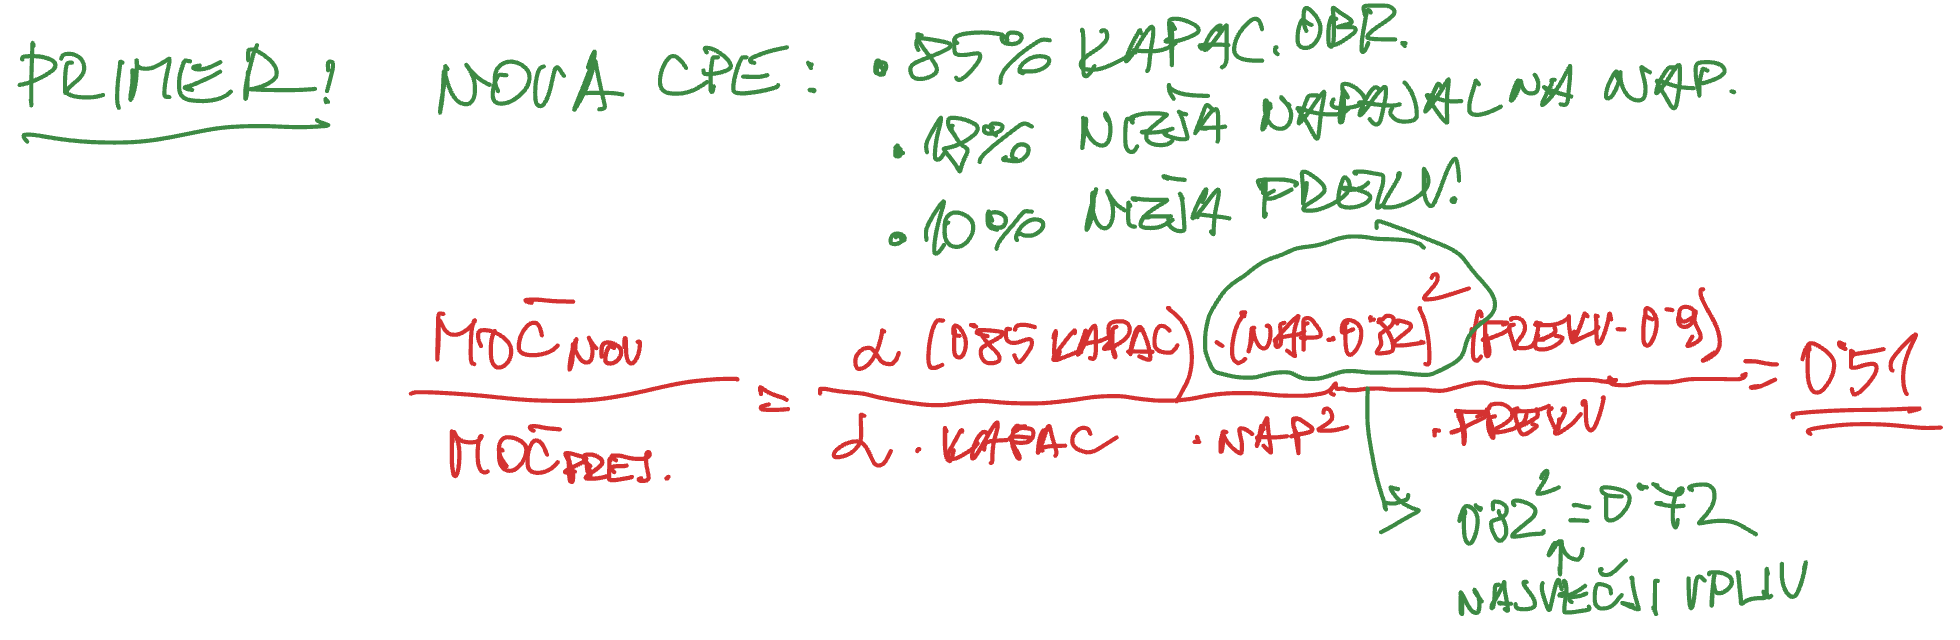 PRIMER! NOVA CPE: • 85% KAPAC. OBR.
• 18% NIŽJA NAPAJALNA NAP.
• 10% NIŽJA FREKV.
MOČ NOV / MOČ PREJ. = α (0'85 KAPAC) · (NAP · 0'82)² (FREKV · 0'9) / α · KAPAC · NAP² · FREKV = 0'51
0'82² = 0'72
NAJVEČJI VPLIV